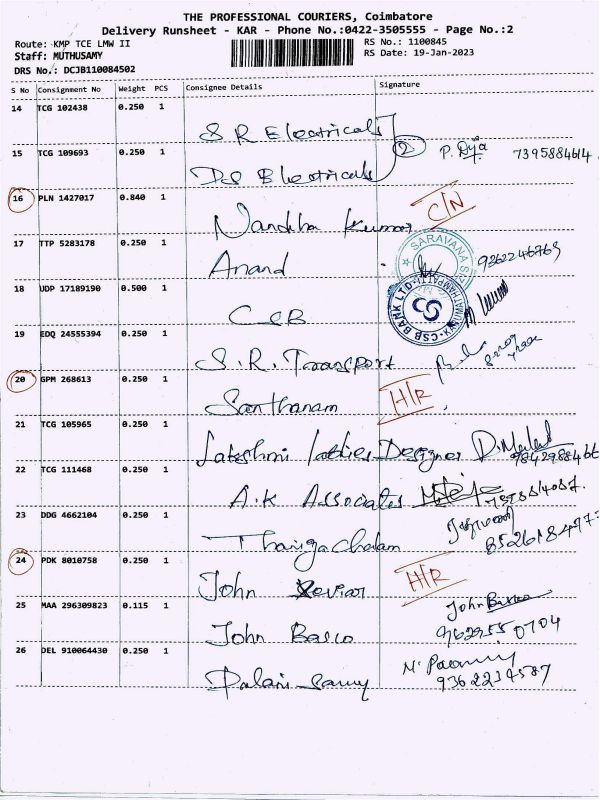 THE PROFESSIONAL COURIERS, Coimbatore
Delivery Runsheet - KAR - Phone No.:0422-3505555 - Page No.:2
Route: KMP TCE LMW II
RS No.: 1100845
Staff: MUTHUSAMY
RS Date: 19-Jan-2023
DRS No.: DCJB110084502
S No Consignment No Weight PCS Consignee Details Signature
14 TCG 102438 0.250 1
S R Electricals
15 TCG 109693 0.250 1 2 P. 7395884614
DS Electricals
16 PLN 1427017 0.840 1 C/N
Nandha Kumar
17 TTP 5283178 0.250 1 SARAVANA
Anand 9362246769
18 UDP 17189190 0.500 1 CSB BANK LTD
CSB
19 EDQ 24555394 0.250 1
S.R. Transport
20 GPM 268613 0.250 1 H/R
Santhanam
21 TCG 105965 0.250 1
Lakshmi Ladies Designer
22 TCG 111468 0.250 1
A.K Associates
23 DDG 4662104 0.250 1
Thangachalam
24 PDK 8010758 0.250 1 H/R
John Xeviar
25 MAA 296309823 0.115 1 John Basco
John Basco 9629550704
26 DEL 910064430 0.250 1
Palani Samy 9362234587